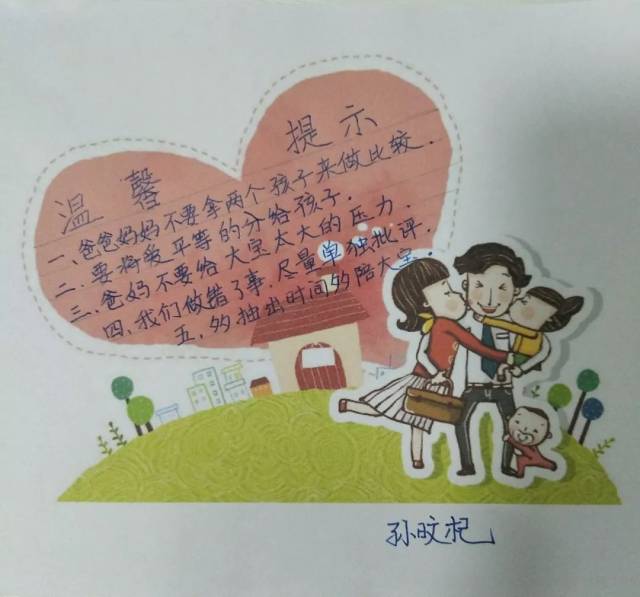 温馨 提示
一、爸爸妈妈不要拿两个孩子来做比较.
二.要将爱平等的分给孩子.
三.爸妈不要给大宝太大的压力.
四.我们做错了事.尽量单独批评.
五.多抽出时间多陪大宝.
孙旼杞